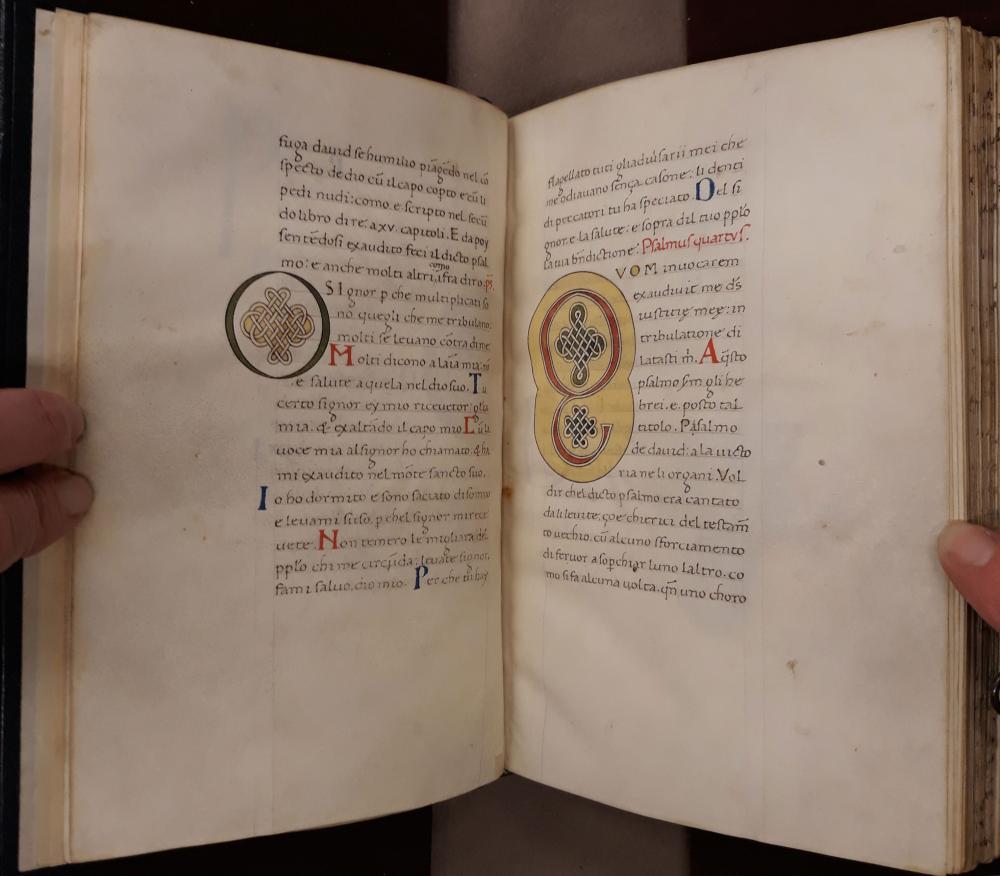 fuga dauid se humilio piãgẽdo nel cõ
specto de dio cũ il capo copto e cũ li
pedi nudi: como e scripto nel secũ
do libro di re. a xv. capituli. E da poy
sentẽdosi exaudito feci il dicto psal
como
mo: e anche molti altri, ifra diro. ps.
SIgnor p che multiplicati so
no quegli che me tribulano:
molti se leuano cõtra di me
Molti dicono a la ĩa mia: nõ
e salute a quela nel dio suo. Tu
certo signor ey mio riceuetor: glia
mia. & exaltãdo il capo mio Cũ la
uoce mia al signor ho chiamato: & ha
mi exaudito nel mõte sancto suo.
Io ho dormito e sono saciato di somno
e leuami su so. p chel signor mi rece
uete. Non temero le migliara del
pplo chi me circũda: leuate signor.
fami saluo. dio mio. Per che tu hay
flagellato tuti gli aduersarii mei che
me odiauano sença casone: li denti
di peccatori tu ha speciato. Del si
gnor e la salute: e sopra dil tuo pplo
la tua bñdictione: Psalmus quartus.
VOM inuocarem
exaudiuit me ds
iustitie mee: in
tribulatione di
latasti m. Aq̃sto
psalmo sm gli he
brei. e. posto tal
titolo. Psalmo
de dauid: a la uicto
ria ne li organi. Vol
dir chel dicto psalmo era cantato
da li leuite, çoe chierici del testam̃
to uechio. cũ alcuno sforciamento
di feruor a sopchiar luno laltro. co
mo si fa alcuna uolta. qñ uno choro